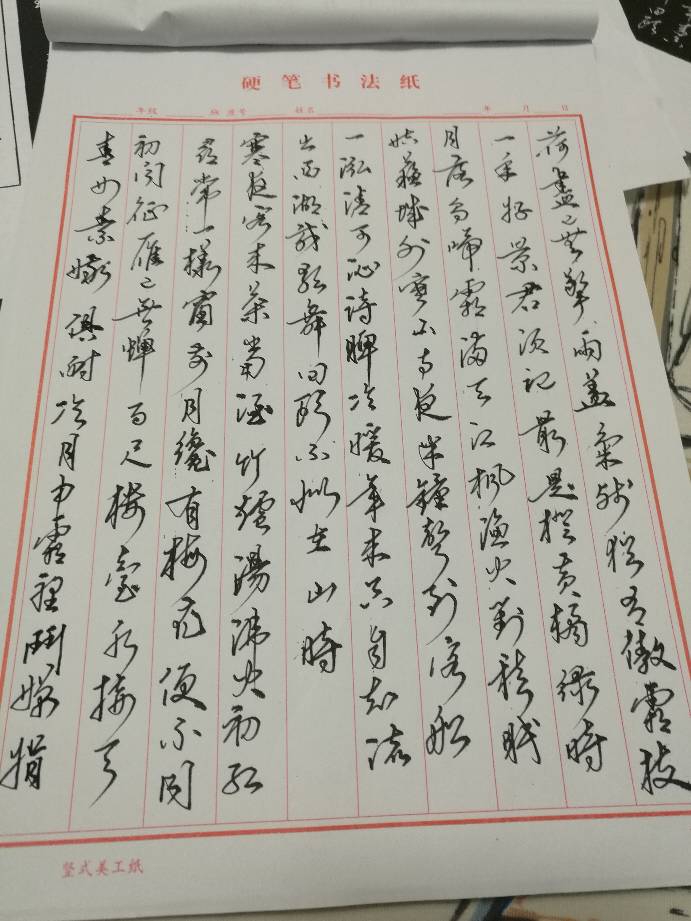 硬笔书法纸
年级 班 座号 姓名 年 月 日
荷盡已無擎雨蓋菊殘猶有傲霜枝
一年好景君須記最是橙黄橘緑時
月落烏啼霜滿天江楓漁火對愁眠
姑蘇城外寒山寺夜半鐘聲到客船
一泓清可沁詩脾冷暖年来只自知流
出西湖載歌舞回頭不似在山時
寒夜客来茶當酒竹爐湯沸火初紅
尋常一樣窗前月纔有梅花便不同
初闻征雁已無蟬百尺楼臺水接天
青女素娥俱耐冷月中霜裡鬥嬋娟
竖式美工纸